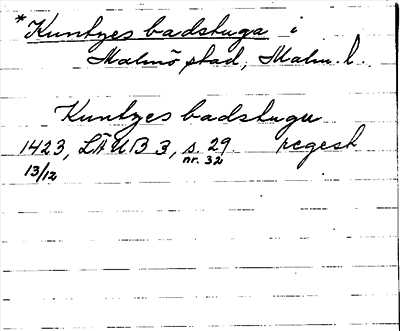 *Kuntzes badstuga i
Malmö stad, Malm. l.
Kuntzes badstugu
1423, LÄUB 3, s. 29 regest
13/12 nr. 32